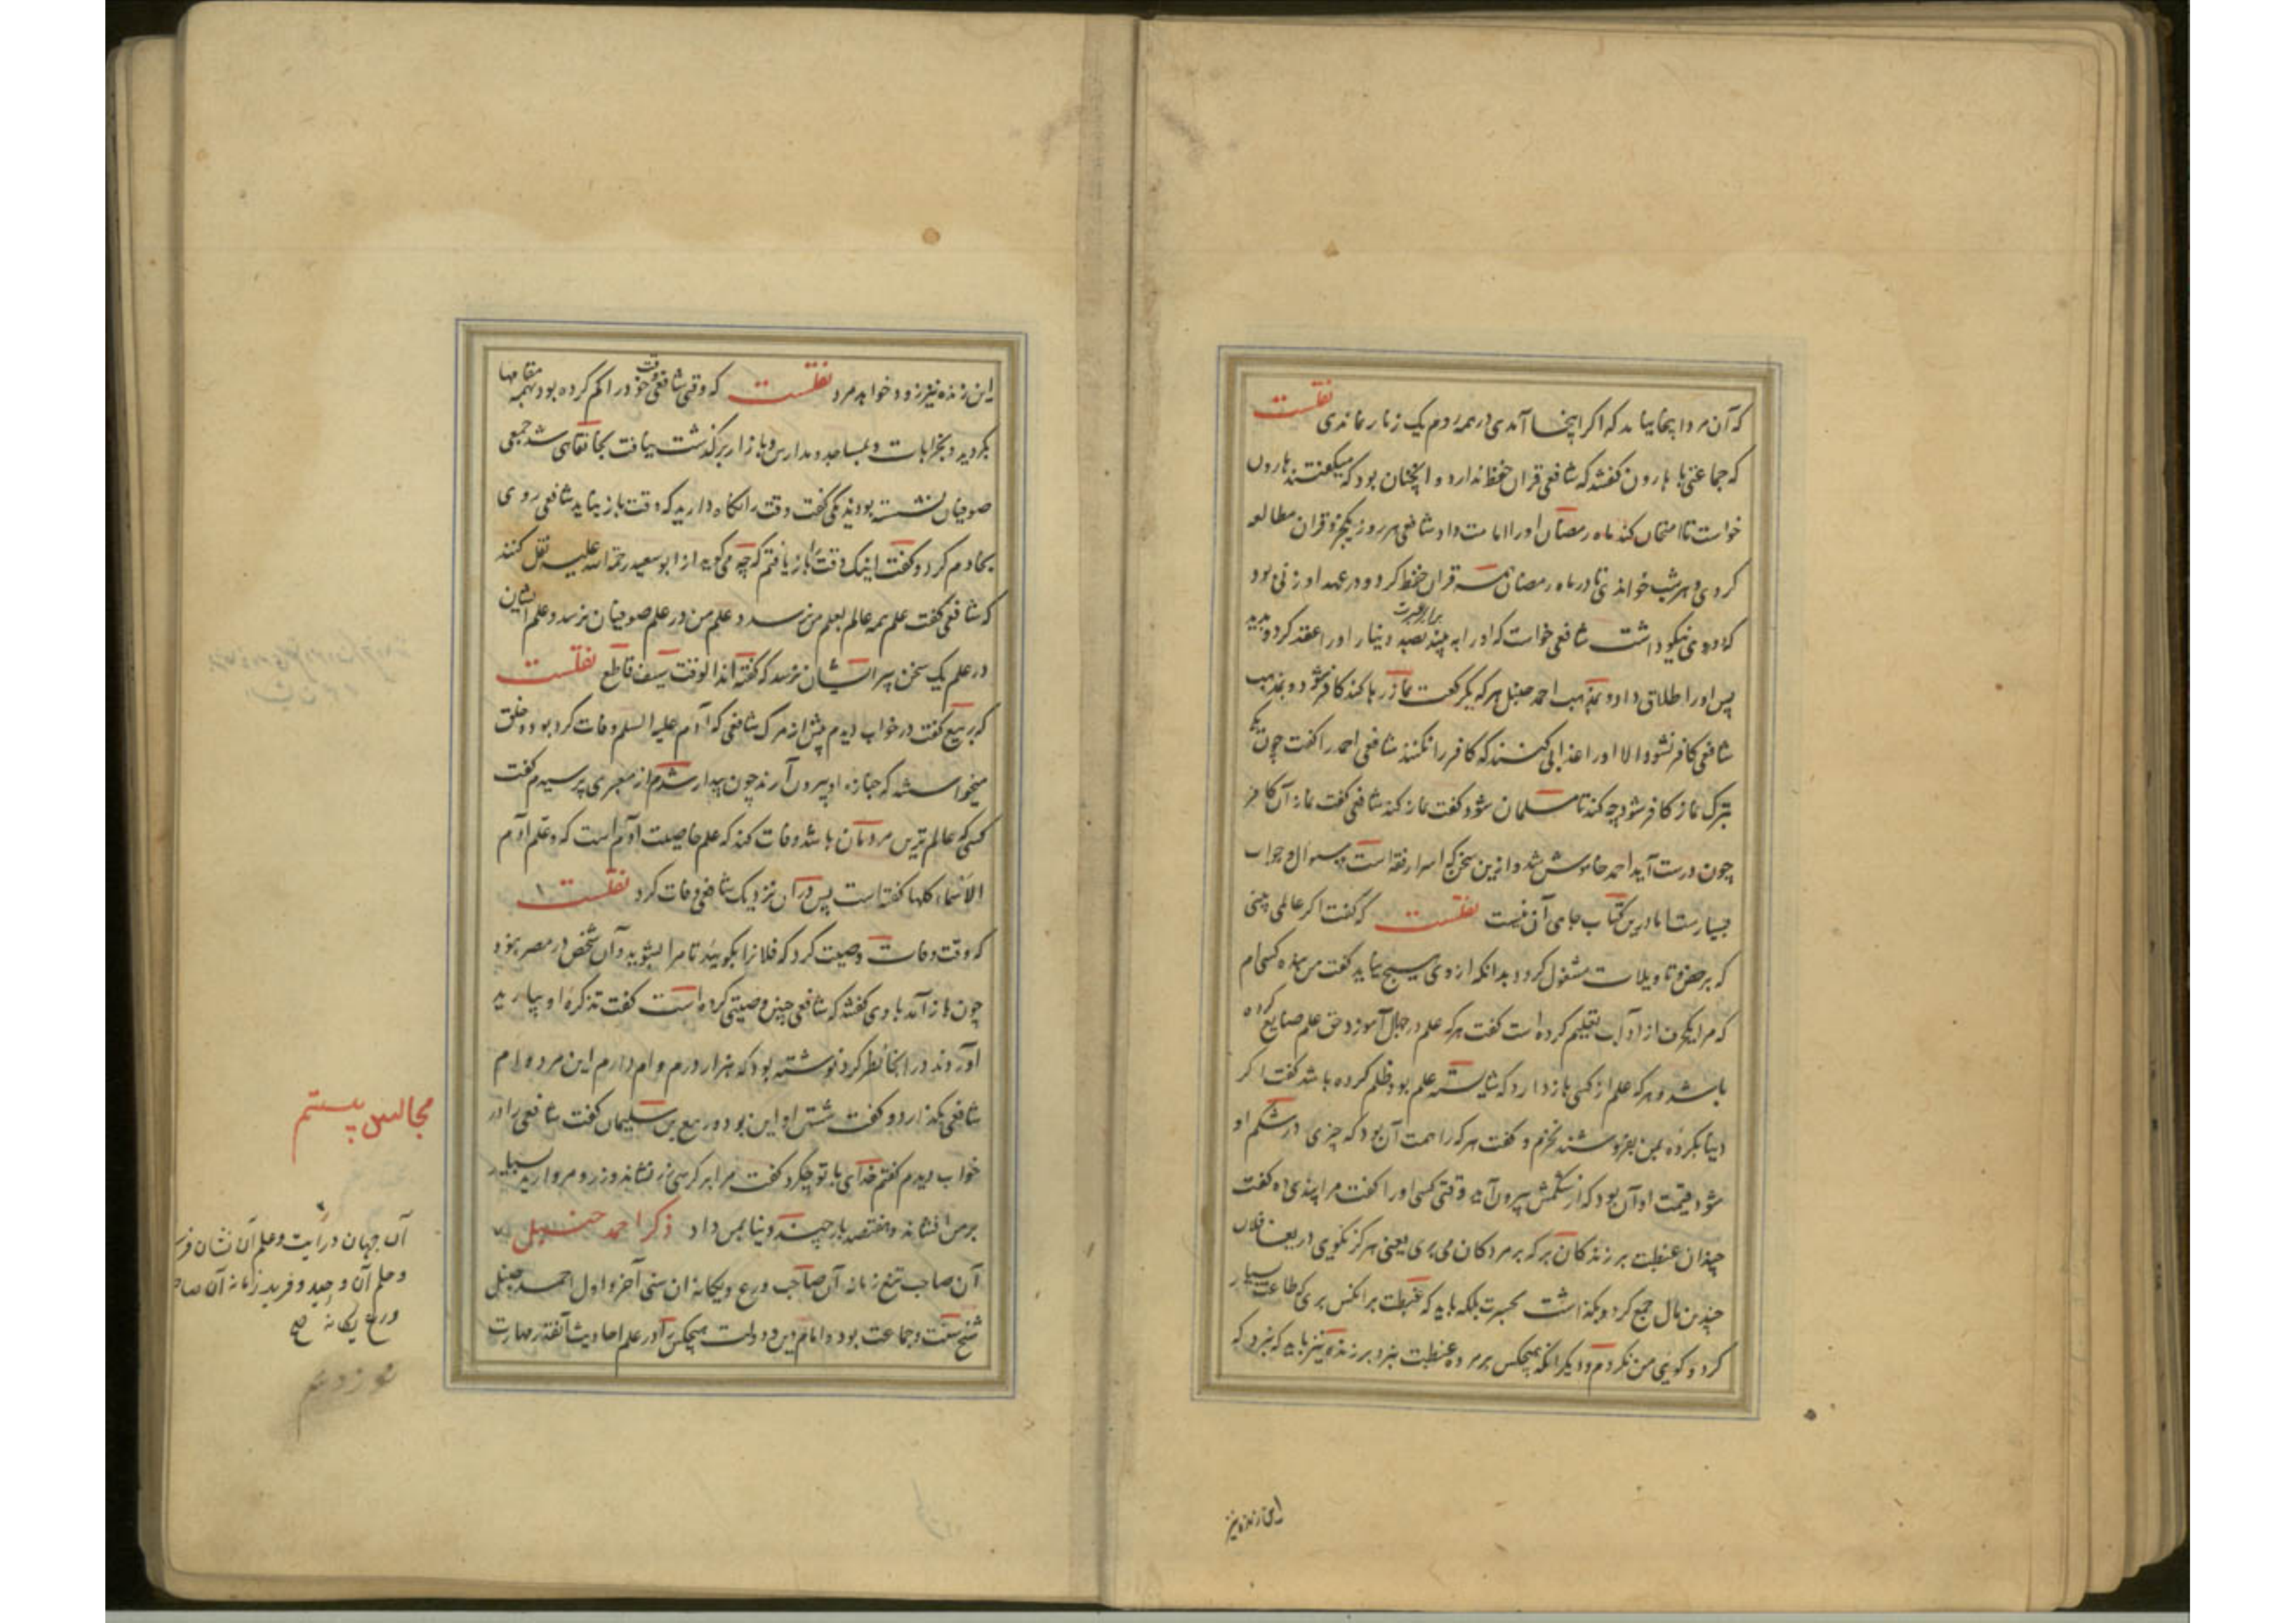 که آن مرد اینجا بیاید که اگر اینجا آمدی در همه روم یک زنار نماندی نقلست
که جماعتی با هارون گفتند که شافعی قران حفظ ندارد و اینچنان بود که میگفتند هارون
خواست تا امتحان کند ماه رمضان اورا امامت داد شافعی هر روز یکجزو قران مطالعه
کردی و هر شب خواندی تا در ماه رمضان همه قران حفظ کرد و در عهد او زنی بود
که دو روی داشت شافعی خواست که اورا به بیند بصد دینار اورا عقد کرد و بدید
پس اورا طلاق داد و بمذهب احمد حنبل هر که یکرکعت نماز رها کند کافر شود و بمذهب
شافعی کافر نشود الا اورا عذابی کنند که کافر را نکنند شافعی احمد را گفت چون یکی
بترک نماز کافر شود چه کند تا مسلمان شود گفت نماز کند شافعی گفت نماز آن کافر
چون درست آید احمد خاموش شد و ازین سخن که اسرار فقه است و سوال و جواب
بسیارست اما درین کتاب جای آن نیست نقلست که گفت اگر عالمی بینی
که برخص و تاویلات مشغول گردد بدانکه از وی هیچ نیاید گفت من بنده کسی ام
که مرا یکحرف از آداب تعلیم کرده است گفت هر که علم در جهال آموزد حق علم ضایع کرده
باشد و هر که علم از کسی باز دارد که شایسته علم بود ظلم کرده باشد گفت اگر
دنیا بگرده بمن بفروشند نخرم و گفت هر که را همت آن بود که چیزی در شکم او
شود قیمت او آن بود که از شکمش بیرون آید وقتی کسی اورا گفت مرا پندی ده گفت
چندان غبطت بر زندگان بر که بر مردگان می بری یعنی هرگز نگویی دریغا فلان
چندین مال جمع کرد و بگذاشت بحسرت بلکه باید که غبطت بر آنکس بری که طاعت بسیار
کرد و گویی من نکردم و دیگر آنکه هیچکس بر مرده غبطت نبرد بر زنده نیز باید که نبرد که
این زنده نیز
این زنده نیز زود خواهد مرد نقلست که وقتی شافعی وقت خود را گم کرده بود بهمه مقامها
بگردید و بخرابات و بمساجد و مدارس و بازار برگذشت نیافت بخانقاهی شد جمعی
صوفیان نشسته بودند یکی گفت وقت را نگاه دارید که وقت باز نیاید شافعی روی
بخادم کرد و گفت اینک وقت را باز یافتم که چه می گوید از ابو سعید رحمة الله علیه نقل کنند
که شافعی گفت علم همه عالم بعلم من نرسد و علم من در علم صوفیان نرسد و علم ایشان
در علم یک سخن پیر ایشان نرسد که گفته اند الوقت سیف قاطع نقلست
که ربیع گفت در خواب دیدم پیش از مرگ شافعی که آدم علیه السلم وفات کرده بود و خلق
میخواستند که جنازه او بیرون آرند چون بیدار شدم از معبری پرسیدم گفت
کسی که عالم ترین مردمان باشد وفات کند که علم خاصیت آدم است که و علم آدم
الاسماء کلها گفته است پس در آن نزدیک شافعی وفات کرد نقلست
که وقت وفات وصیت کرد که فلانرا بگویید تا مرا بشوید و آن شخص در مصر بود
چون باز آمد با وی گفتند که شافعی چنین وصیتی کرده است گفت تذکره او بیارید
آوردند در آنجا نظر کرد نوشته بود که هزار درم وام دارم این مرد وام
شافعی بگذارد و گفت شستن او این بود و ربیع بن سلیمان گفت شافعی را در
خواب دیدم گفتم خدای با تو چکرد گفت مرا بر کرسی زر نشاند و زر و مروارید بسیار
بر من افشاند و هفتصد بار چند دنیا بمن داد ذکر احمد حنبل
آن صاحب تبع زمانه آن صاحب ورع و یگانه ان سنی آخر و اول احمد حنبل
شیخ سنت و جماعت بود و امام دین و دولت هیچکس را در علم احادیث آنقدر مهارت
مجالس بیستم
آن جهان درایت و علم آن نشان
و حلم آن وحید و فرید زمانه آن
ورع یگانه صح